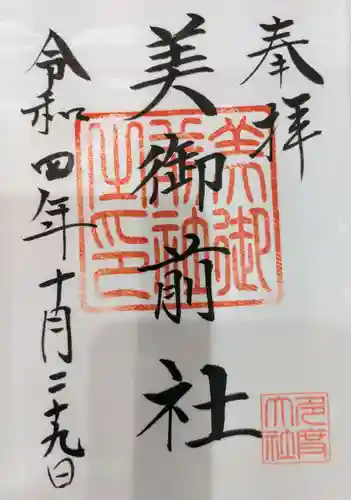 奉拝
美御前社
令和四年十月二十九日
美御前社之印